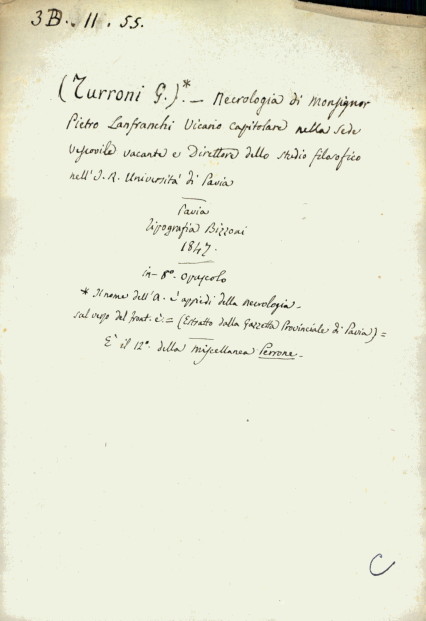 3B. 11. 55.
(Turroni G.)*. — Necrologia di Monsignor
Pietro Lanfranchi Vicario capitolare nella sede
vescovile vacante e Direttore dello studio filosofico
nell'I. R. Università di Pavia
Pavia
Tipografia Bizzoni
1847.
in-8º. opuscolo
* Il nome dell'A. è appiedi della necrologia.
sul verso del front. è: = (Estratto dalla Gazzetta Provinciale di Pavia) =
È il 12º. della Miscellanea Perrone.
C